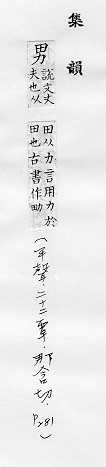 集韻
男 說文丈夫也从
田从力言用力於田也古書作
(平聲.二十二覃.那含切.P281)